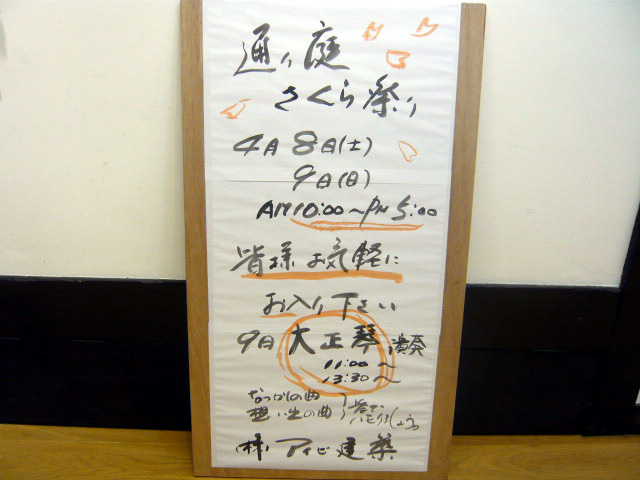 通り庭
さくら祭り
4月8日(土)
9日(日)
AM10:00〜PM5:00
皆様お気軽に
お入り下さい
9日 大正琴 演奏
11:00〜
13:30〜
なつかしの曲
想い出の曲
(株)アイビ建築